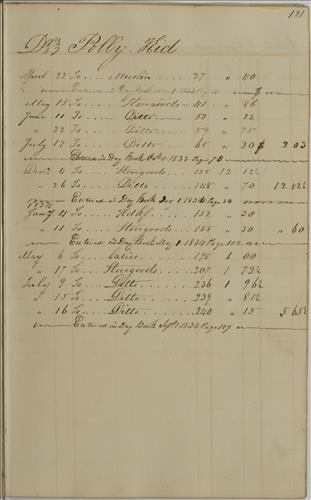 121
Dr Polly Kid
1833
April 22 To Muslin 27 " 40
Entered in Day Book May 1 1833 Page
May 15 To Storgoods 41 " 86
June 11 To Ditto 53 " 22
" 22 To Ditto 59 " 75
July 17 To Ditto 65 " 20 $ 2 03
Entered in Day Book Oct 1 1833 Page 78
Decr 4 To Storegoods 135 12 12½
" 26 To Ditto 148 " 70 12 82½
Entered in Day Book Jan 1 1834 Page 84
1834
Jany 4 To Hdkf 152 " 30
" 11 To Storegoods 155 " 30 " 60
Entered in Day Book May 1 1834 Page 102
May 6 To Calico 178 1 00
" 17 To Storegoods 207 1 72½
July 9 To Ditto 236 1 96½
" 15 To Ditto 239 " 81½
" 16 To Ditto 240 " 15 5 65½
Entered in Day Book Sept 1 1834 Page 109